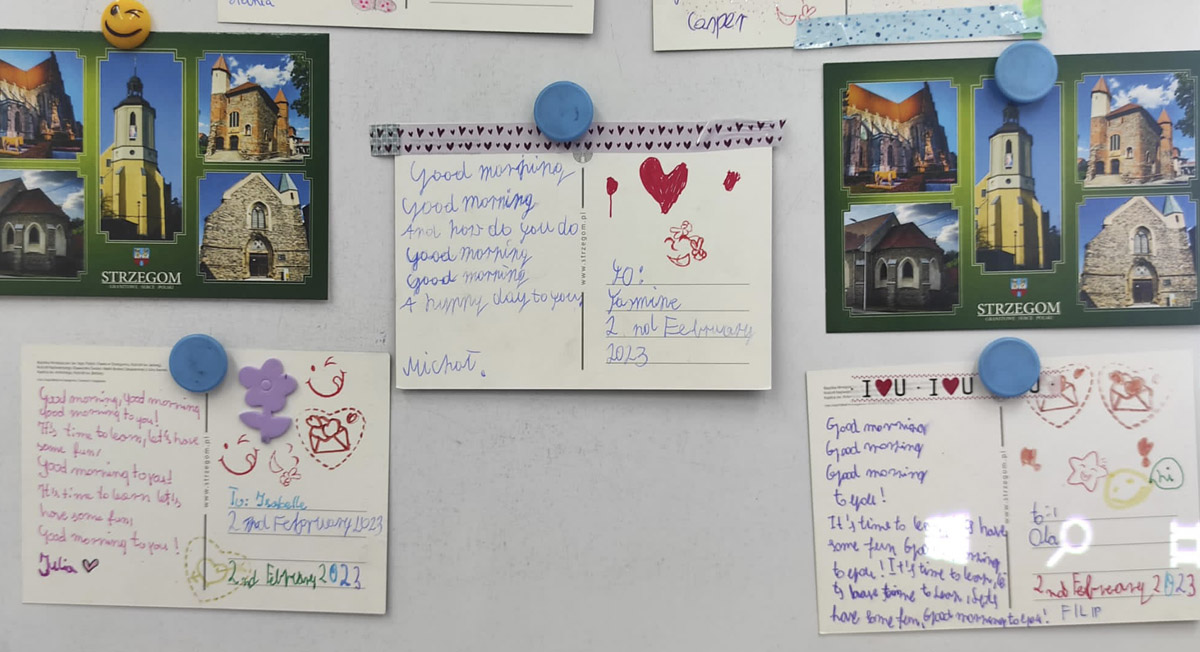 Casper
STRZEGOM
GRANITOWE SERCE POLSKI
Good morning
Good morning
And how do you do
Good morning
Good morning
A hyppy day to you
Michał.
www.strzegom.pl
To:
Jasmine
2 nd February
2023
STRZEGOM
GRANITOWE SERCE POLSKI
Good morning, good morning
good morning to you!
It's time to learn, let's have
some fun!
Good morning to you!
It's time to learn let's
have some fun,
Good morning to you!
Julia
www.strzegom.pl
To: Isabelle
2nd February 2023
2nd February 2023
I U · I U
Good morning
Good morning
Good morning
to you!
It's time to have
some fun Good morning
to you! It's time to learn, le
t's have time to learn, let's
have some fun, Good morning to you!
www.strzegom.pl
hi
to:
Ola
2nd February 2023
FILIP